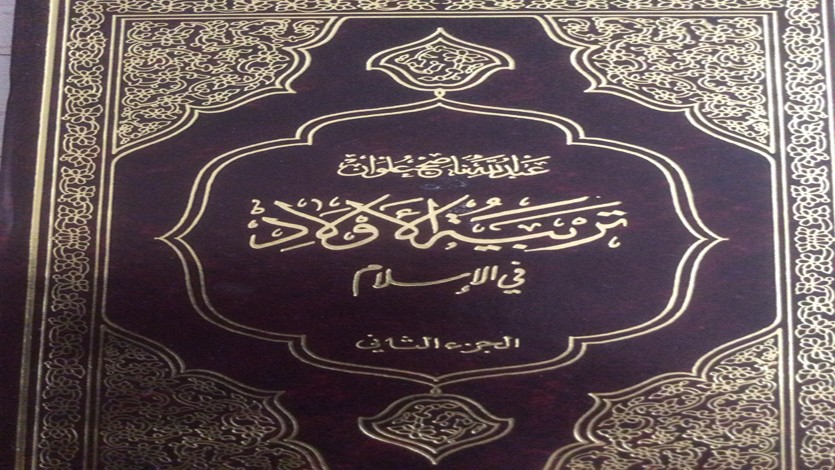 عبد الله ناصح علوان
تربية الأولاد
في الإسلام
الجزء الثاني